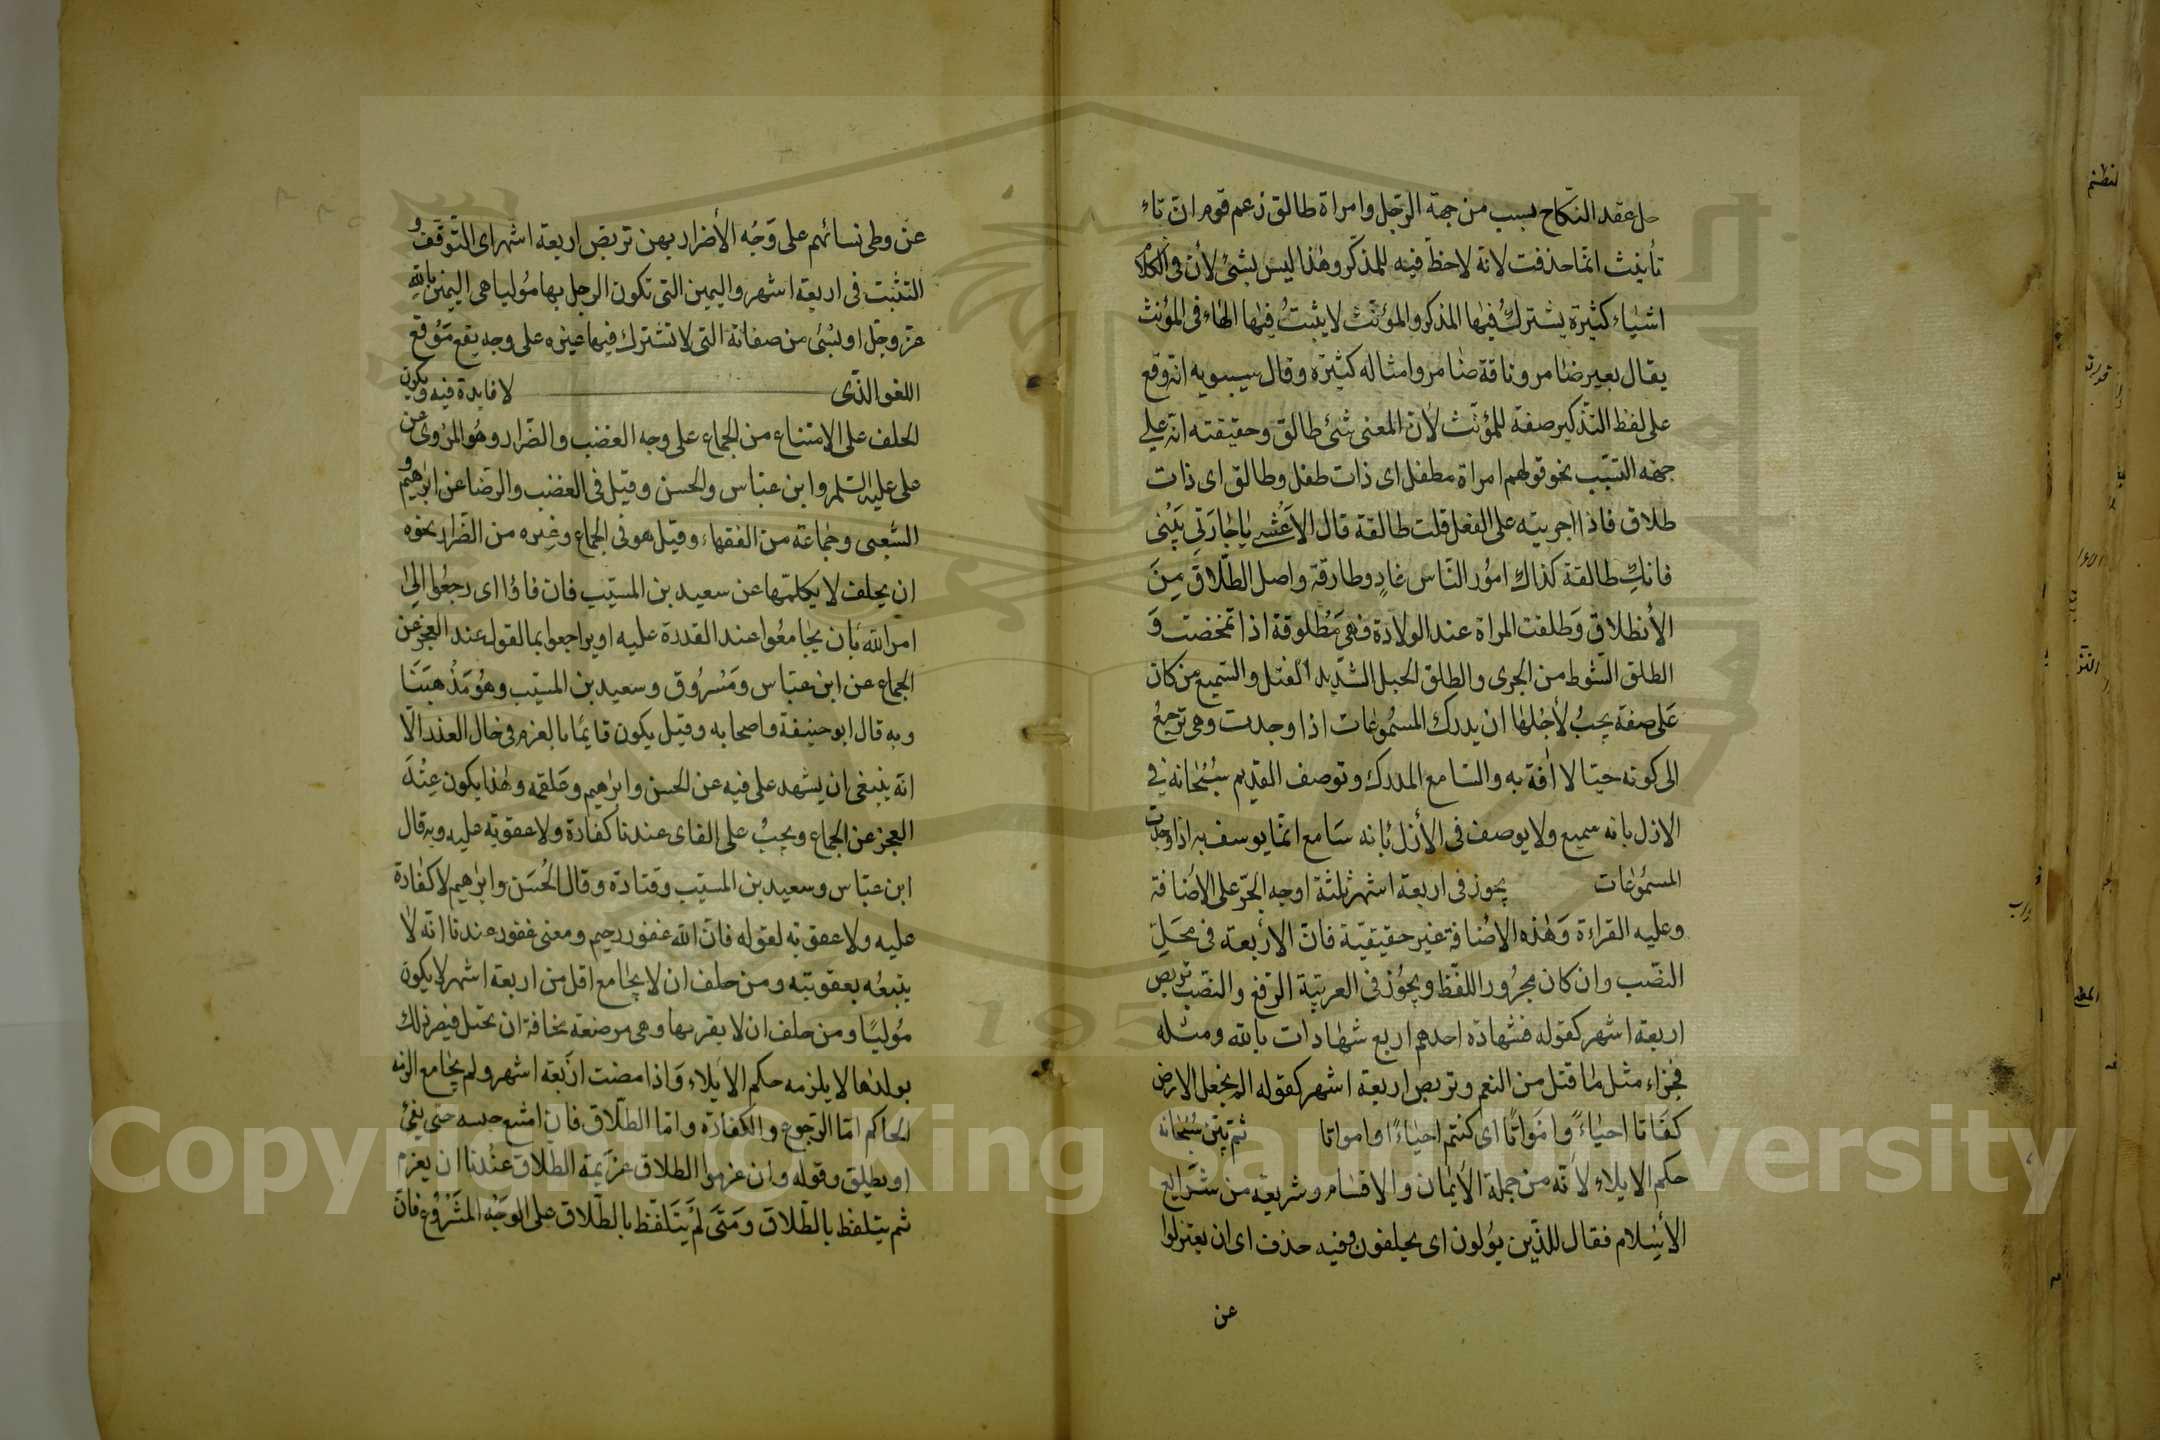 حل عقد النكاح بسبب من جهة الرّجل وامراة طالق زعم قوم انّ تاء
تأنيث انّما حذفت لانه لاحظّ فيه للمذكّر وهذا ليس بشئ لأن فى الكلام
اشياء كثيرة يشترك فيها المذكر والمؤنّث لا يثبت فيها الهاء فى المؤنث
يقال بعير ضامر وناقة ضامر وامثاله كثيرة وقال سيبويه انه وقع
على لفظ التّذكير صفة للمؤنّث لأن المعنى شئ طالق وحقيقته انه على
جهة النسّب نحو قولهم امراة مطفل اى ذات طفل وطالق اى ذات
طلاق فاذا اجريته على الفعل قلت طالقة قال الاعشى ياجارتى بينى
فانك طالقة كذاك امور النّاس غادٍ وطارقه واصل الطّلاق مِنَ
الأنطلاق وَطلقت المراة عند الولادة فهى مَطلوقة اذا تمخضت وَ
الطلق الشّوط من الجرى والطلق الحبل الشّديد الفتل والسّميع من كان
عَلى صفة يجبُ لأجلها ان يدرك المسمُوعات اذا وجدت وهى ترجعُ
الى كونه حيّا لا اٰفة به والسّامع المدرك وتوصف القديم سُبْحانه فى
الازل بانه سميع ولا يوصف فى الأزل بانه سَامع انّما يوسف به اذا وجدت
المسمُوعات يجوز فى اربعة اشهر ثلثة اوجه الجرّ على الاضافة
وعليه القراءة وَهٰذه الاضافة غير حقيقيّة فانّ الاربعة فى محَلّ
النصّب وان كان مجرُور اللفظ ويجُوز فى العربيّة الرّفع والنصّب تربص
اربعة اشهر كقوله فشهادة احدهم اربع شهادات بالله ومثله
فجزاء مثل ما قتل من النعم وتربص اربعة اشهر كقوله الم يجعل الارض
كفاتا احياءً وامَواتًا اى كنتم احياءً او امواتا ثم بيّن سُبْحانه
حكم الايلاء لانّه من جملة الأيمان والاقسام وشريعة من شرَايع
الأسلام فقال للذّين يؤلون اى يحلفون وفيه حذف اى ان يعتزلوا
عن
عن وطى نسائهم على وَجُه الأضرار بهن تربص اربعة اشهر اى التّوقف و
التثبت فى اربعة اشهر واليمين التى تكون الرجل بها مُوليا هى اليمين بالله
عزّ وجلّ او بشئ من صفاتة التى لا تشترك فيها غيره على وجه يقع مَوْقع
اللغو الذّى لا فايدة فيه ويكون
الحلف على الامتناع من الجماع على وجه الغضب والضّرار وهُو المرْوى عن
على عليه السّلم وابن عبّاس والحسن وقيل فى الغضب والرضا عن ابرٰهيم و
الشّعبى وجماعة من الفقهاء وقيل هو فى الجماع وغيره من الضّرار نحوه
ان يحلف لا يكلمّها عن سعيد بن المسيّب فان فاؤا اى رجعُوا الىٰ
امر الله بان يجامعُوا عند القدرة عليه او يراجعوا بما لقول عند العجز عن
الجماع عن ابن عبّاس ومَسْرُوق وسعيد بن المسيّب وهُو مَذْهبَنَا
وبه قال ابو حنيفة واصحابه وقيل يكون قايمًا بالعزم فى حال العذر الّا
انّه ينبغى ان يشهد على فيه عن الحسن وابرٰهيم وعَلقمة وهٰذا يكون عِنْدَ
العجز عن الجماع ويجبُ على الفاى عندنا كفارة ولا عقوبة عليه وبه قال
ابن عبّاس وسعيد بن المسيّب وقتادة وقال الحُسَن وابرٰهيم لا كفارة
عليه ولا عقوبة لقوله فانّ الله غفور رحيم ومعنى غفور عندنا انّه لا
يتبعُه بعقوبته ومن حلف ان لا يجامع اقل من اربعة اشهر لا يكون
مُوليًا ومن حلف ان لا يقربها وهى مرضعة مخافة ان تحبل فيضر ذلك
بولدها لا يلزمه حكم الايلاء وَاذا مضت ارْبَعة اشهر ولم يجامع الزمه
الحاكم امّا الرّجوع والكفارة وامّا الطّلاق فان امتنع حبسه حتى يفئ
او يطلق وقوله وان عزموا الطلاق عزَيمة الطّلاق عنْدنا ان يعزم
ثم يتلفظ بالطّلاق وَمَتَى لَم يَتَلفّظ بالطّلاق على الوَجْه المَشْرُوع فانّ
1957
Copyright © King Saud University